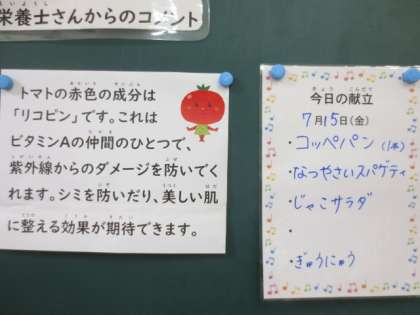 栄養士さんからのコメント
トマトの赤色の成分は
「リコピン」です。これは
ビタミンAの仲間のひとつで、
紫外線からのダメージを防いでく
れます。シミを防いだり、美しい肌
に整える効果が期待できます。
今日の献立
7月15日(金)
・コッペパン(1本)
・なつやさいスパゲティ
・じゃこサラダ
・
・ぎゅうにゅう